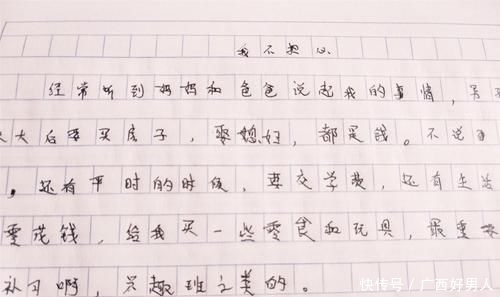 我不担心
经常听到妈妈和爸爸说起我的事情，男孩
长大后要买房子，娶媳妇，都是钱。不说
，还有平时的时候，要交学费，还有生活
零花钱，给我买一些零食和玩具，最重要
补习啊，兴趣班之类的。
快传号／广西好男人